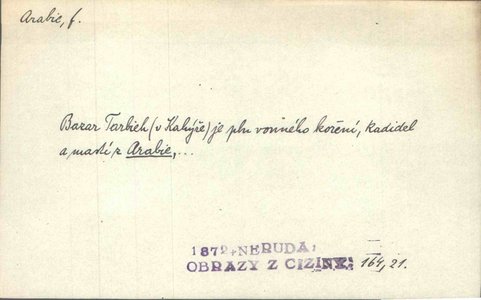 Arabie, f.
Bazar Tarbieh (v Kahýře) je pln vonného koření, kadidel
a mastí z Arabie,...
1872, NERUDA,
OBRAZY Z CIZINY, 164, 21.